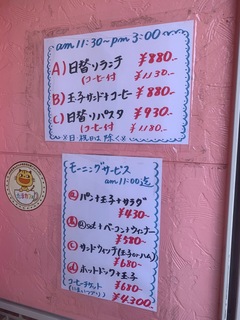 am 11:30~pm 3:00
A) 日替りランチ ¥880-
(コーヒー付 ¥1130-
B) 玉子サンド+コーヒー ¥880-
C) 日替りパスタ ¥930-
(コーヒー付 ¥1180-
※日・祝日は除く※
モーニングサービス
am 11:00迄
a パン+玉子+サラダ
¥430-
b aset+ベーコン+ウィンナー
¥580-
c サンドウィッチ(玉子orハム)
¥680-
d ホットドッグ+玉子
¥680-
コーヒーチケット
¥4300-